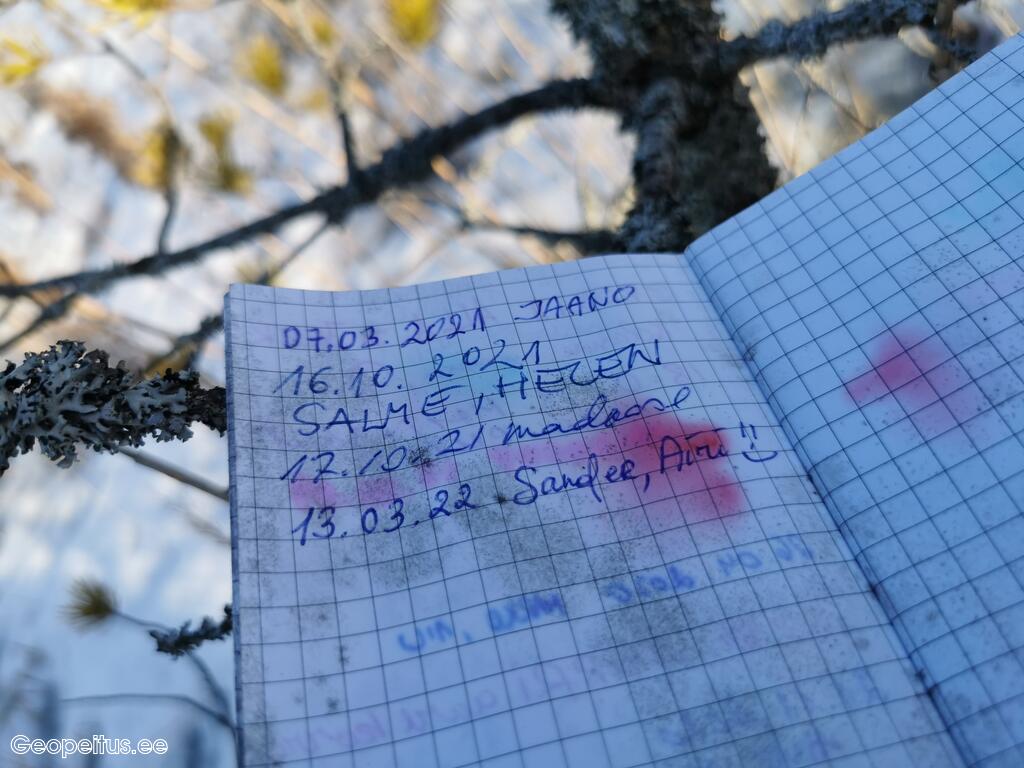 07.03.2021 JAANO
16.10.2021
SALME, HELEN
17.10.21
13.03.22 Sander, Airi
Geopeitus.ee